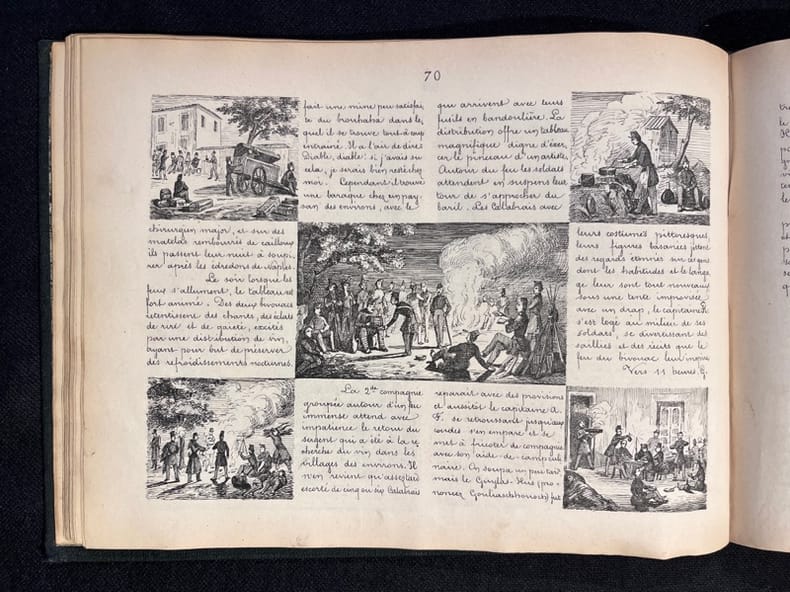 70
fait une mine peu satisfai,
te du brouhaha dans le,
quel il se trouve tout-à-coup
entrainé. Il a l'air de dire:
Diable, diable! si j'avais su
cela, je serais bien resté chez
moi. Cependant il trouve
une baraque chez un pay-
san des environs, avec le
chirurgien major, et sur des
matelas rembourrés de cailloux
ils passent leur nuit à soupi,
rer après les édredons de Naples.
Le soir lorsque les
feux s'allument, le tableau est
fort animé. Des deux bivouacs
retentissent des chants, des éclats
de rire et de gaieté, excités
par une distribution de vin,
ayant pour but de préserver
des refroidissements nocturnes.
La 2de compagnie
groupée autour d'un feu
immense attend avec
impatience le retour du
sergent qui a été à la re
cherche du vin dans les
villages des environs. Il
n'en revient qu'assez tard
escorté de cinq ou six Calabrais
qui arrivent avec leurs
fusils en bandoulière. La
distribution offre un tableau
magnifique digne d'exer,
cer le pinceau d'un artiste.
Autour du feu les soldats
attendent en suspens leur
tour de s'approcher du
baril. Les Calabrais avec
leurs costumes pittoresques,
leurs figures basanées jettent
des regards étonnés sur ces gens
dont les habitudes et le langa
ge leur sont tout nouveaux
Sous une tente improvisée
avec un drap, le capitaine G.
s'est logé au milieu de ses
soldats, se divertissant des
saillies et des récits que le
feu du bivouac leur inspire
Vers 11 heures, G.
reparaît avec des provisions
et aussitôt le capitaine A.
F. se retroussant jusqu'aux
coudes s'en empare et se
met à fricoter de compagnie
avec son aide-de-camp culi
naire. On soupa un peu tard
mais le Guylas-Hus (pro-
noncez Gouliaschhousch) fut